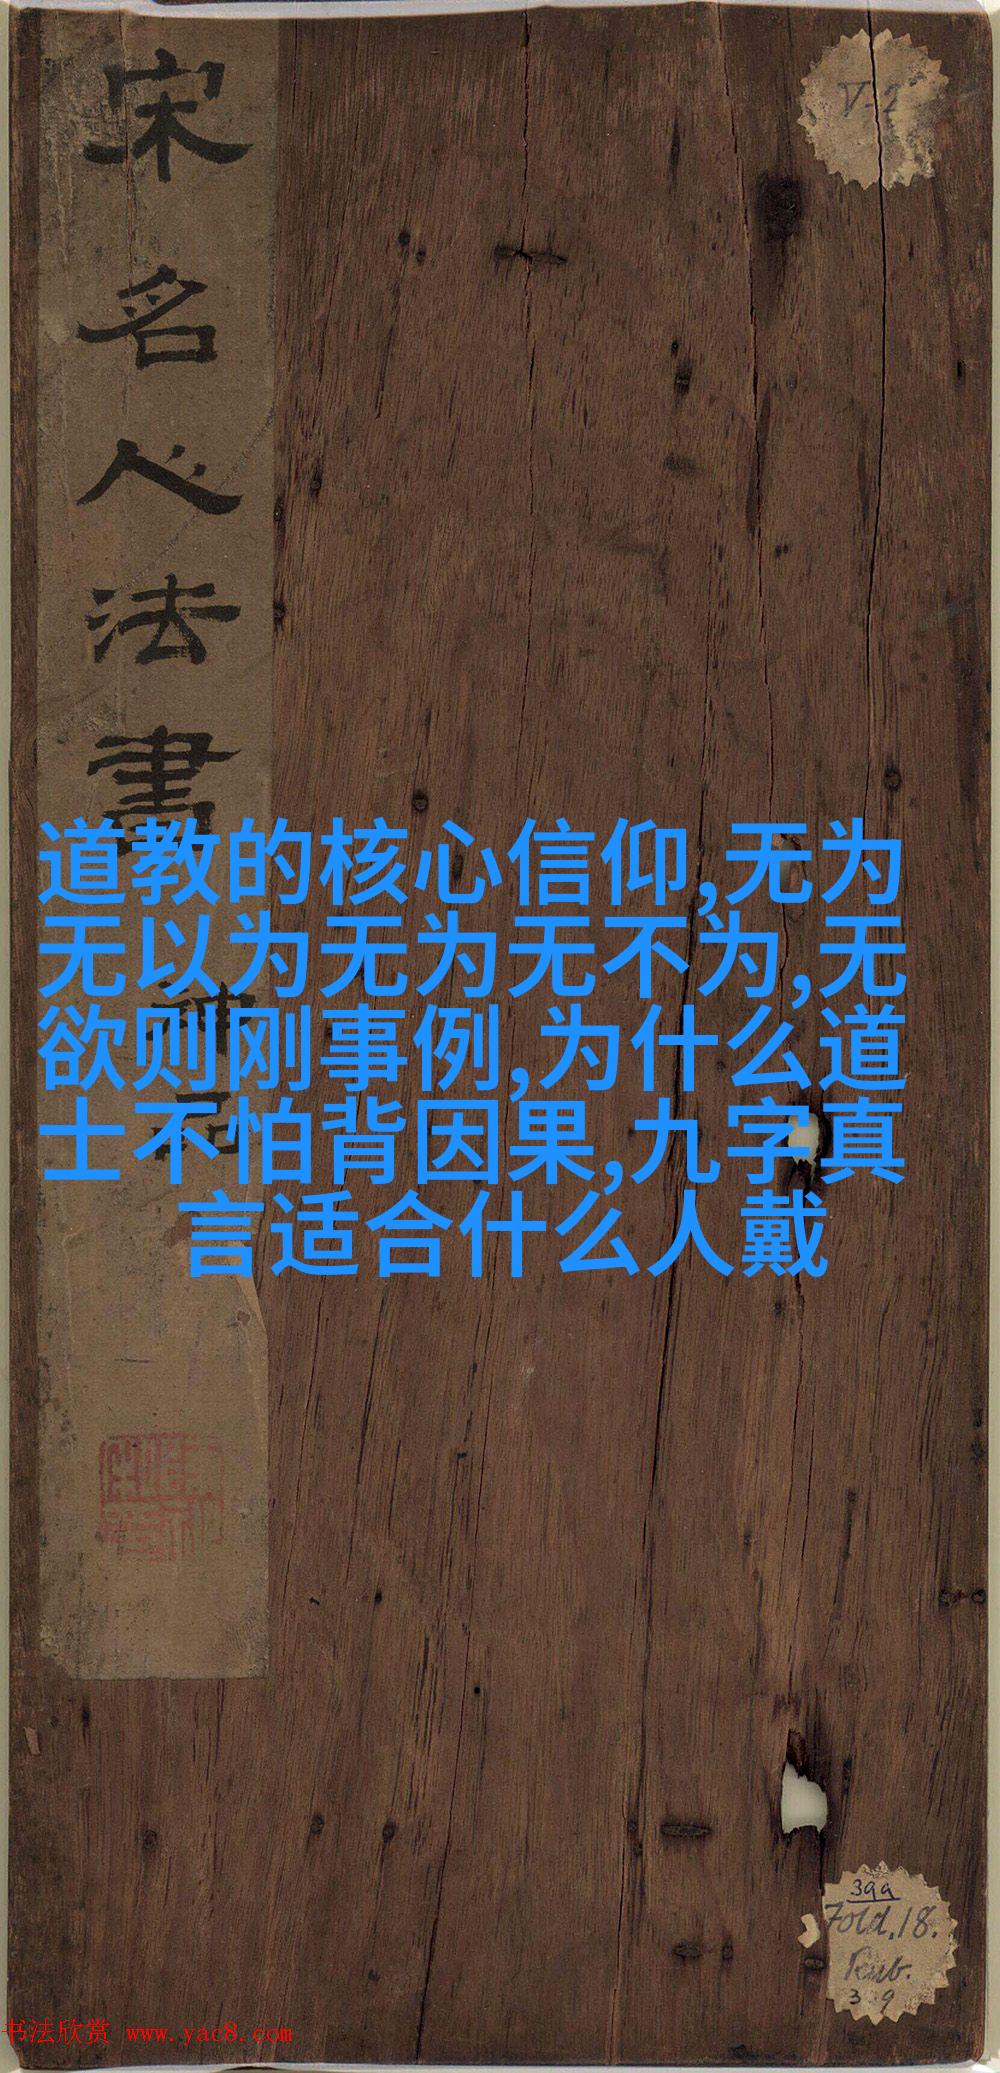 宋名人法書
神品
V-2
道教的核心信仰,无为
无以为无为无不为,无
欲则刚事例,为什么道
士不怕背因果,九字真
言适合什么人戴
399
Fold.18.
书法欣赏 www.yac8.com